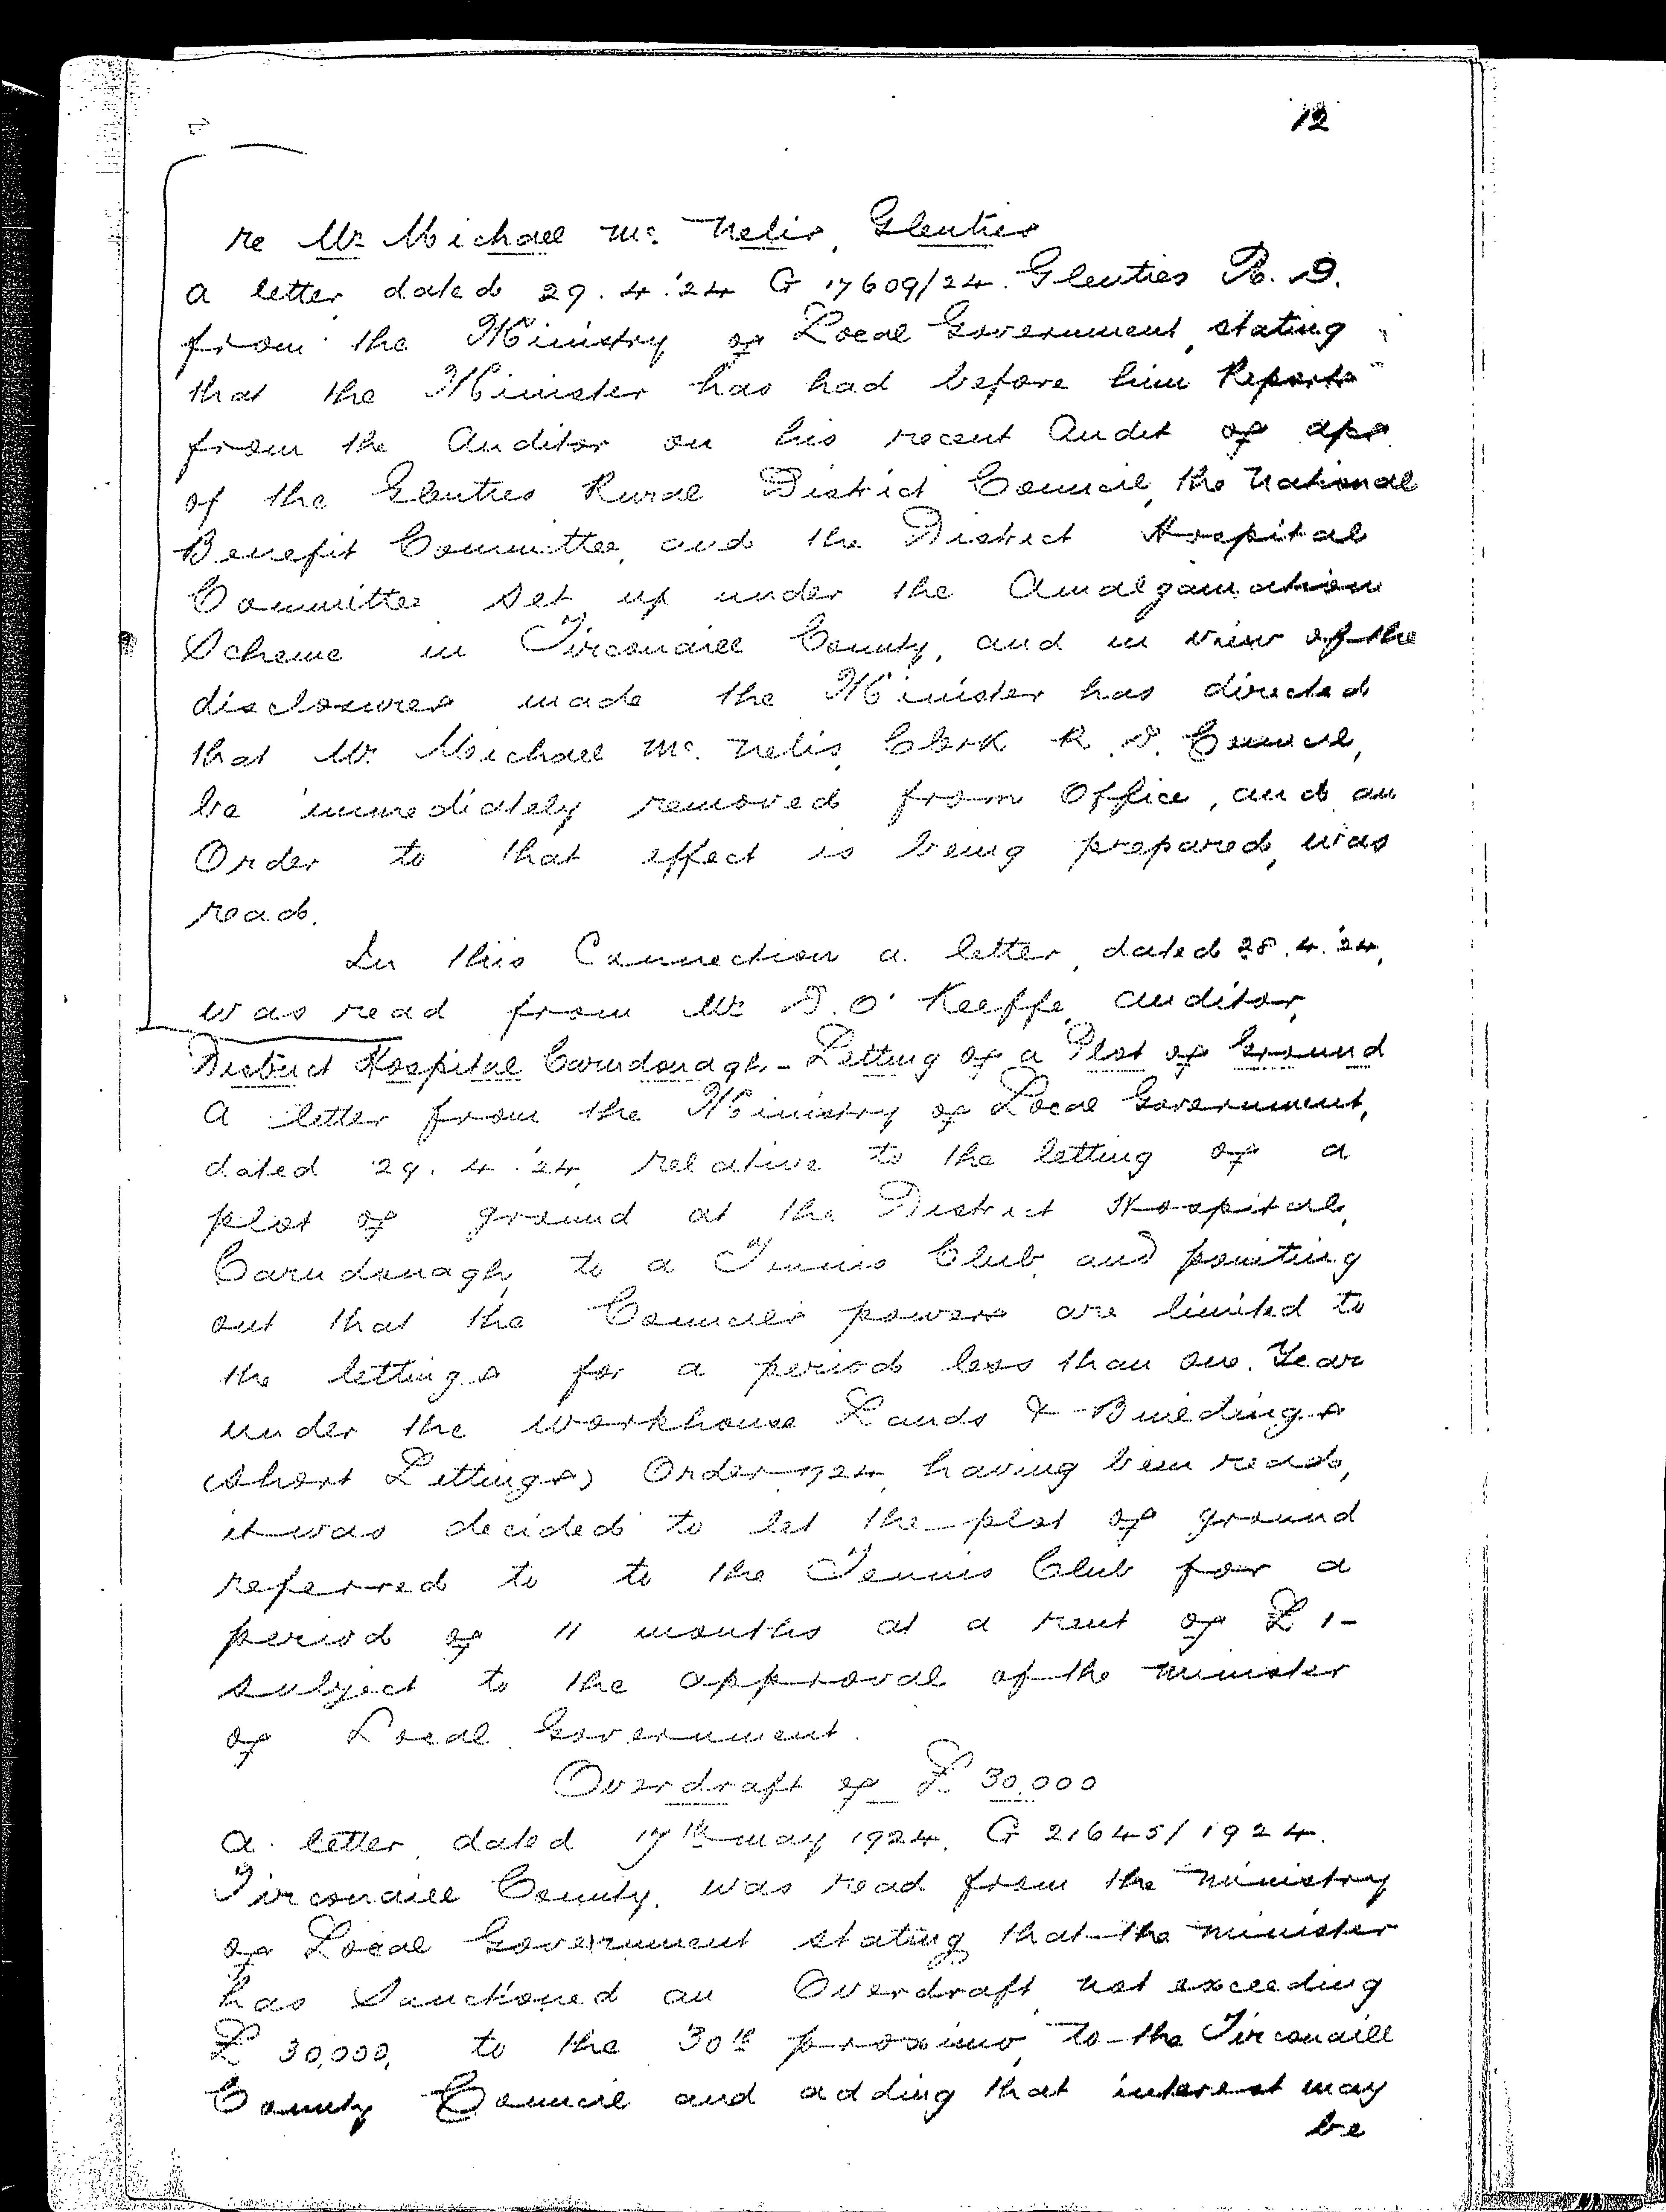 12
re Mr Michael Mc Nelis, Glenties
A letter dated 29.4.'24 G 17609/24. Glenties R.D.
from the Ministry of Local Government, stating
that the Minister has had before him Reports
from the Auditor on his recent Audit of
of the Glenties Rural District Council, the National
Benefit Committee, and the District Hospital
Committee set up under the Amalgamation
Scheme in Tirconaill County, and in view of the
disclosures made the Minister has directed
that Mr Michael Mc. Nelis, Clerk R.D. Council,
be immediately removed from Office, and an
Order to that effect is being prepared, was
read.
In this Connection a letter, dated 28.4.'24,
was read from Mr D. O'Keeffe, Auditor,
District Hospital Carndonagh - Letting of a Plot of Ground
A letter from the Ministry of Local Government,
dated 29.4.'24, relative to the letting of a
plot of ground at the District Hospital,
Carndonagh, to a Tennis Club, and pointing
out that the Councils powers are limited to
the lettings for a period less than one Year
under the Workhouse Lands & Buildings
(Short Lettings) Order 1924, having been read,
it was decided to let the plot of ground
referred to to the Tennis Club for a
period of 11 months at a rent of £1-
subject to the approval of the Minister
of Local Government.
Overdraft of £30,000
A letter, dated 17th May 1924, G 21645/1924.
Tirconaill County, was read from the Ministry
of Local Government stating that the Minister
has Sanctioned an Overdraft, not exceeding
£30,000, to the 30th proximo, to the Tirconaill
County Council and adding that interest may
be